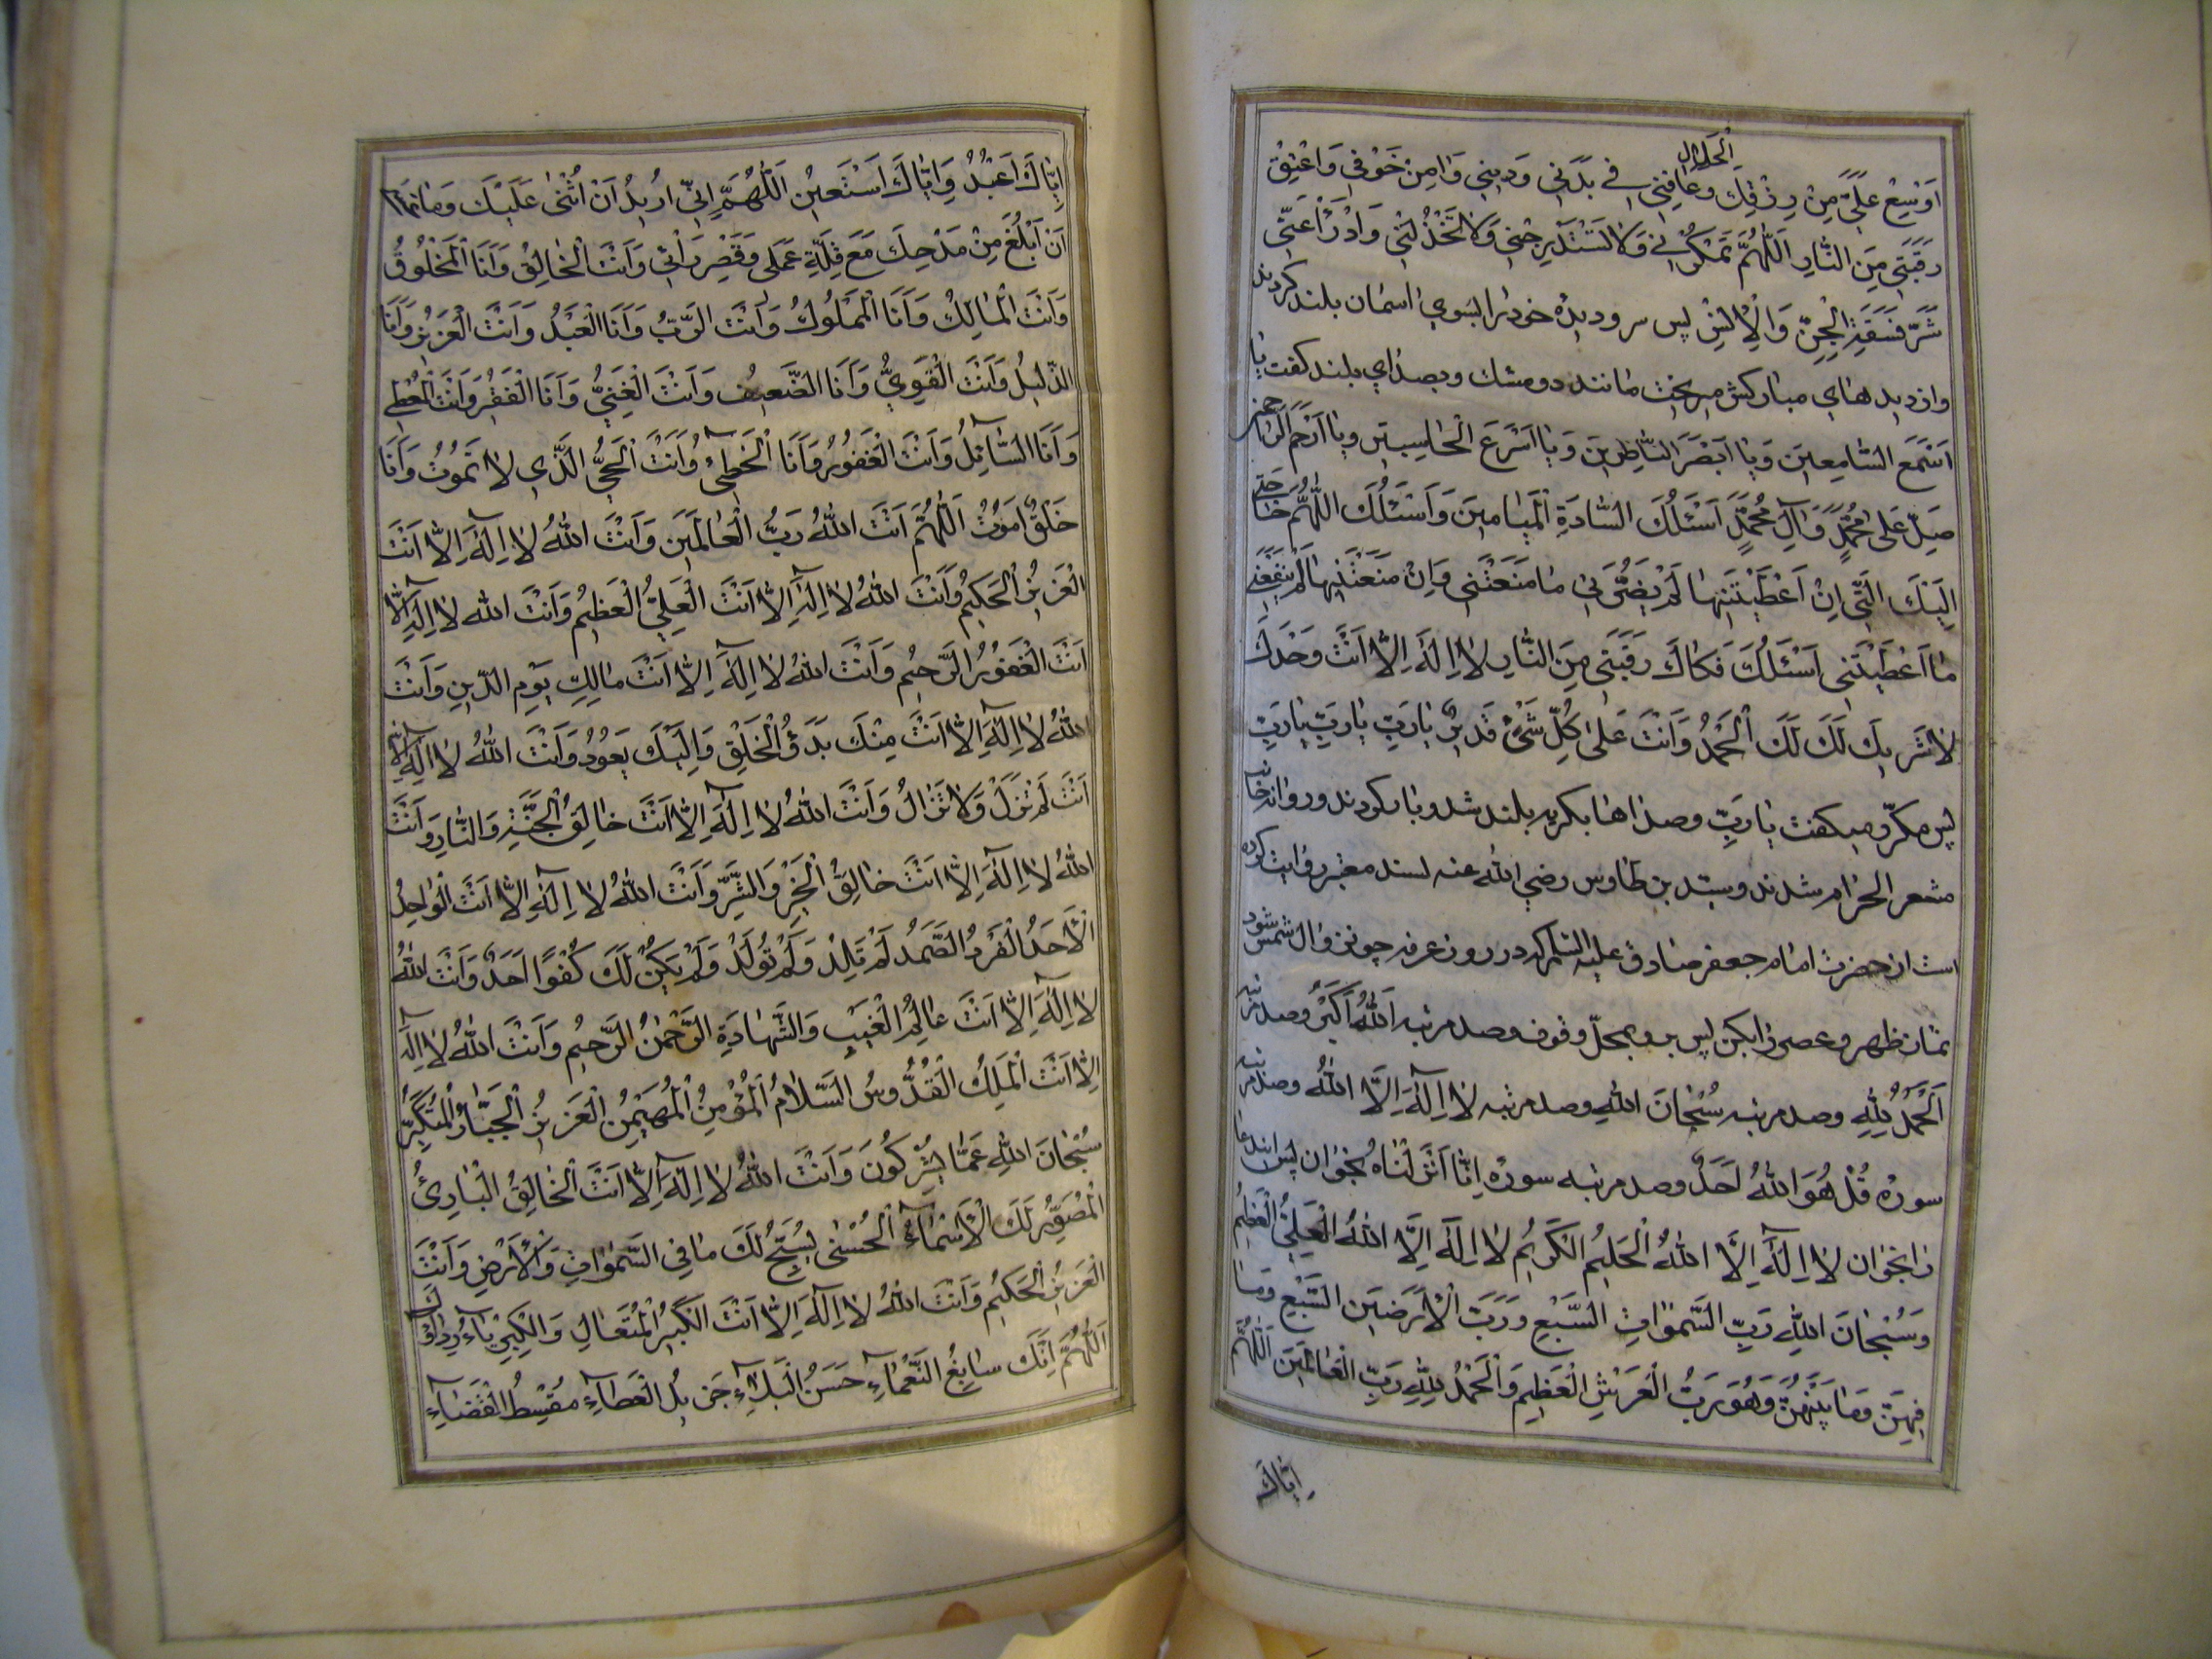 اَوْسِعْ عَلَيَّ مِنْ رِزْقِكَ الْحَلالِ وَعافِنِي فِي بَدَنِي وَدِينِي وَامِنْ خَوْفِي وَاعْتِقْ
رَقَبَتِي مِنَ النّارِ اَللّهُمَّ لا تَمْكُرْ بِي وَلا تَسْتَدْرِجْنِي وَلا تَخْذُلْنِي وَادْرَأْ عَنِّي
شَرَّ فَسَقَةِ الْجِنِّ وَالْاِنْسِ پس سر و ديدهٔ خود را بسوي اسمان بلند كردند
واز ديدهاي مباركش ميريخت مانند دو مشك وبصداي بلند كفت يا
اَسْمَعَ السّامِعِينَ وَيا اَبْصَرَ النّاظِرِينَ وَيا اَسْرَعَ الْحاسِبِينَ ويا اَرْحَمَ الرّاحِمِينَ
صَلِّ عَلى مُحَمَّدٍ وَآلِ مُحَمَّدٍ اَسْئَلُكَ السّادَةِ الْمَيامِينَ وَاَسْئَلُكَ اللّهُمَّ حاجَتِي
اِلَيْكَ الَّتِي اِنْ اَعْطَيْتَنِيها لَمْ يَضُرَّنِي ما مَنَعْتَنِي وَاِنْ مَنَعْتَنِيها لَمْ يَنْفَعْنِي
ما اَعْطَيْتَنِي اَسْئَلُكَ فَكاكَ رَقَبَتِي مِنَ النّارِ لا اِلهَ اِلّا اَنْتَ وَحْدَكَ
لا شَرِيكَ لَكَ لَكَ الْحَمْدُ وَاَنْتَ عَلى كُلِّ شَيْءٍ قَدِيرٌ يا رَبِّ يا رَبِّ يا رَبِّ
پس مكرّر ميكفت يا رَبِّ وصداها بكريه بلند شد وبار كردند وروانه جانب
مشعر الحرام شدند وسيّد بن طاوس رضي الله عنه بسند معتبر روايت كرده
است از حضرت امام جعفر صادق عليه السّلم كه در روز عرفه چون زوال شمس شود
نماز ظهر وعصر را بكن پس برو بمحلّ وقوف وصد مرتبه اَللهُ اَكْبَرُ وصد مرتبه
اَلْحَمْدُ لِلّهِ وصد مرتبه سُبْحانَ اللهِ وصد مرتبه لا اِلهَ اِلَّا اللهُ وصد مرتبه
سورهٔ قُلْ هُوَ اللهُ اَحَدٌ وصد مرتبه سورهٔ اِنّا اَنْزَلْناهُ بخوان پس ايندعا
را بخوان لا اِلهَ اِلَّا اللهُ الْحَلِيمُ الْكَرِيمُ لا اِلهَ اِلَّا اللهُ الْعَلِيُّ الْعَظِيمُ
وَسُبْحانَ اللهِ رَبِّ السَّمواتِ السَّبْعِ وَرَبِّ الْاَرَضِينَ السَّبْعِ وَما
فِيهِنَّ وَما بَيْنَهُنَّ وَهُوَ رَبُّ الْعَرْشِ الْعَظِيمِ وَالْحَمْدُ لِلّهِ رَبِّ الْعالَمِينَ اَللّهُمَّ
اِيّاكَ
اِيّاكَ اَعْبُدُ وَاِيّاكَ اَسْتَعِينُ اَللّهُمَّ اِنِّي اُرِيدُ اَنْ اُثْنِيَ عَلَيْكَ وَما
اَنْ اَبْلُغَ مِنْ مَدْحِكَ مَعَ قِلَّةِ عَمَلِي وَقَصْرِ رَأْيِي وَاَنْتَ الْخالِقُ وَاَنَا الْمَخْلُوقُ
وَاَنْتَ الْمالِكُ وَاَنَا الْمَمْلُوكُ وَاَنْتَ الرَّبُّ وَاَنَا الْعَبْدُ وَاَنْتَ الْعَزِيزُ وَاَنَا
الذَّلِيلُ وَاَنْتَ الْقَوِيُّ وَاَنَا الضَّعِيفُ وَاَنْتَ الْغَنِيُّ وَاَنَا الْفَقِيرُ وَاَنْتَ الْمُعْطِي
وَاَنَا السّآئِلُ وَاَنْتَ الْغَفُورُ وَاَنَا الْخاطِئُ وَاَنْتَ الْحَيُّ الَّذِي لا تَمُوتُ وَاَنَا
خَلْقٌ اَمُوتُ اَللّهُمَّ اَنْتَ اللهُ رَبُّ الْعالَمِينَ وَاَنْتَ اللهُ لا اِلهَ اِلّا اَنْتَ
الْعَزِيزُ الْحَكِيمُ وَاَنْتَ اللهُ لا اِلهَ اِلّا اَنْتَ الْعَلِيُّ الْعَظِيمُ وَاَنْتَ الله لا اِلهَ اِلّا
اَنْتَ الْغَفُورُ الرَّحِيمُ وَاَنْتَ اللهُ لا اِلهَ اِلّا اَنْتَ مالِكِ يَوْمِ الدِّينِ وَاَنْتَ
اللهُ لا اِلهَ اِلّا اَنْتَ مِنْكَ بَدَؤُ الْخَلْقِ وَاِلَيْكَ يَعُودُ وَاَنْتَ اللهُ لا اِلهَ اِلّا
اَنْتَ لَمْ تَزَلْ وَلا تَزالُ وَاَنْتَ اللهُ لا اِلهَ اِلّا اَنْتَ خالِقُ الْجَنَّةِ وَالنّارِ وَاَنْتَ
اللهُ لا اِلهَ اِلّا اَنْتَ خالِقُ الْخَيْرِ وَالشَّرِّ وَاَنْتَ اللهُ لا اِلهَ اِلّا اَنْتَ الْواحِدُ
الْاَحَدُ الْفَرْدُ الصَّمَدُ لَمْ تَلِدْ وَلَمْ تُولَدْ وَلَمْ يَكُنْ لَكَ كُفُوًا اَحَدٌ وَاَنْتَ اللهُ
لا اِلهَ اِلّا اَنْتَ عالِمُ الْغَيْبِ وَالشَّهادَةِ الرَّحْمنُ الرَّحِيمُ وَاَنْتَ اللهُ لا اِلهَ
اِلّا اَنْتَ الْمَلِكُ الْقُدُّوسُ السَّلامُ الْمُؤْمِنُ الْمُهَيْمِنُ الْعَزِيزُ الْجَبّارُ الْمُتَكَبِّرُ
سُبْحانَ اللهِ عَمّا يُشْرِكُونَ وَاَنْتَ اللهُ لا اِلهَ اِلّا اَنْتَ الْخالِقُ الْبارِئُ
الْمُصَوِّرُ لَكَ الْاَسْمآءُ الْحُسْنى يُسَبِّحُ لَكَ ما فِي السَّمواتِ وَالْاَرْضِ وَاَنْتَ
الْعَزِيزُ الْحَكِيمُ وَاَنْتَ اللهُ لا اِلهَ اِلّا اَنْتَ الْكَبِيرُ الْمُتَعالِ وَالْكِبْرِيآءُ رِداؤُكَ
اَللّهُمَّ اِنَّكَ سابِغُ النَّعْمآءِ حَسَنُ الْبَلآءِ جَزِيلُ الْعَطآءِ مُقْسِطُ الْقَضآءِ